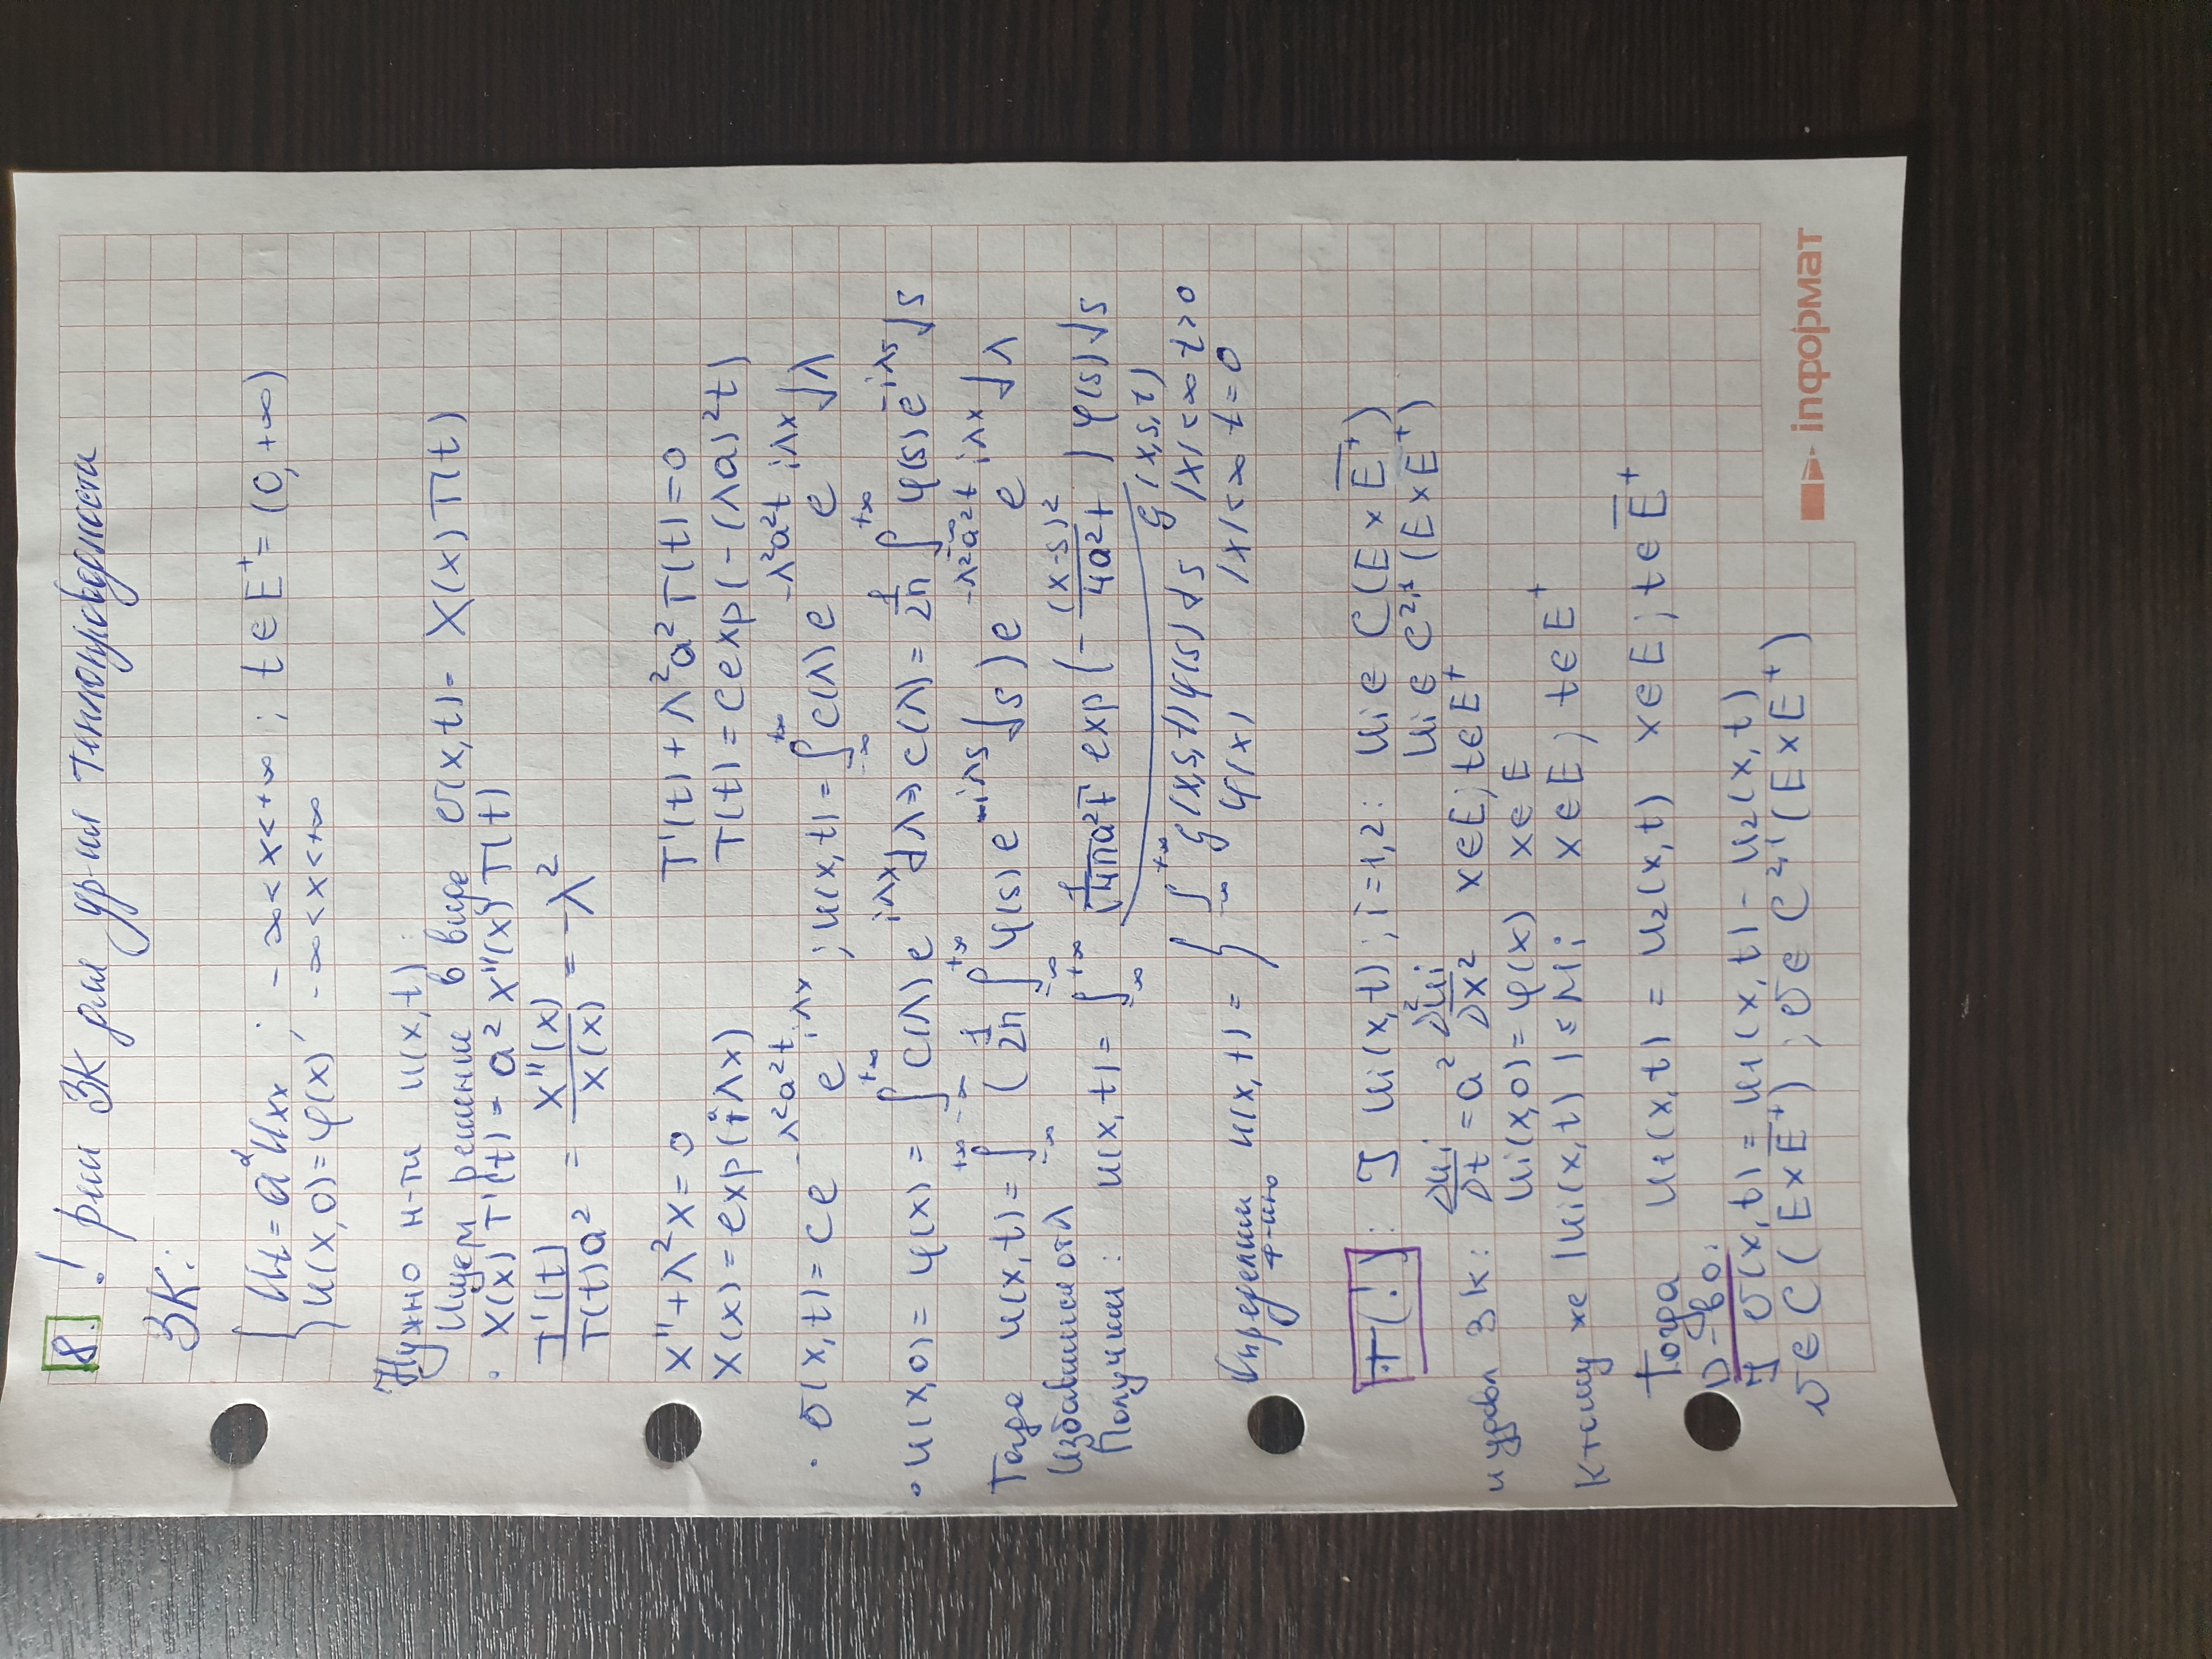 8. ! реш ЗК для ур-ия теплопроводности
ЗК:
{ Ut = a²Uxx ; -∞<x<+∞ ; t∈E⁺=(0,+∞)
U(x,0)=φ(x), -∞<x<+∞
Нужно н-ти U(x,t):
Ищем решение в виде v(x,t)= X(x)T(t)
· X(x)T'(t)=a²X''(x)T(t)
T'(t)/T(t)a² = X''(x)/X(x) = -λ²
X''+λ²X=0 T'(t)+λ²a²T(t)=0
X(x)=exp(iλx) T(t)=Cexp(-(λa)²t)
· v(x,t)= Ce^{-λ²a²t} e^{iλx} ; u(x,t)=∫_{-∞}^{+∞} C(λ)e^{-λ²a²t} e^{iλx}dλ
· U(x,0)=φ(x)=∫_{-∞}^{+∞} C(λ)e^{iλx}dλ⇒C(λ)=1/2π ∫_{-∞}^{+∞} φ(s)e^{-iλs}ds
Тогда U(x,t)=∫_{-∞}^{+∞}(1/2π ∫_{-∞}^{+∞} φ(s)e^{-iλs}ds)e^{-λ²a²t} e^{iλx}dλ
Избавимся от λ
Получим: U(x,t)=∫_{-∞}^{+∞} 1/√4πa²t exp(-(x-s)²/4a²t)φ(s)ds
G(x,s,t)
Определим ф-цию U(x,t)= { ∫_{-∞}^{+∞} G(x,s,t)φ(s)ds |x|<∞ t>0
φ(x) |x|<∞ t=0
T(!): ∃ Ui(x,t); i=1,2: Ui∈C(E×E̅⁺)
Ui∈C²,¹(E×E⁺)
и удовл ЗК: ∂Ui/∂t=a² ∂²Ui/∂x² x∈E; t∈E⁺
Ui(x,0)=φ(x) x∈E
К тому же |Ui(x,t)|≤Mi x∈E; t∈E⁺
Тогда U₁(x,t)=U₂(x,t) x∈E; t∈E̅⁺
D-во:
v(x,t)=U₁(x,t)-U₂(x,t)
v∈C(E×E̅⁺); v∈C²,¹(E×E⁺)
inформат